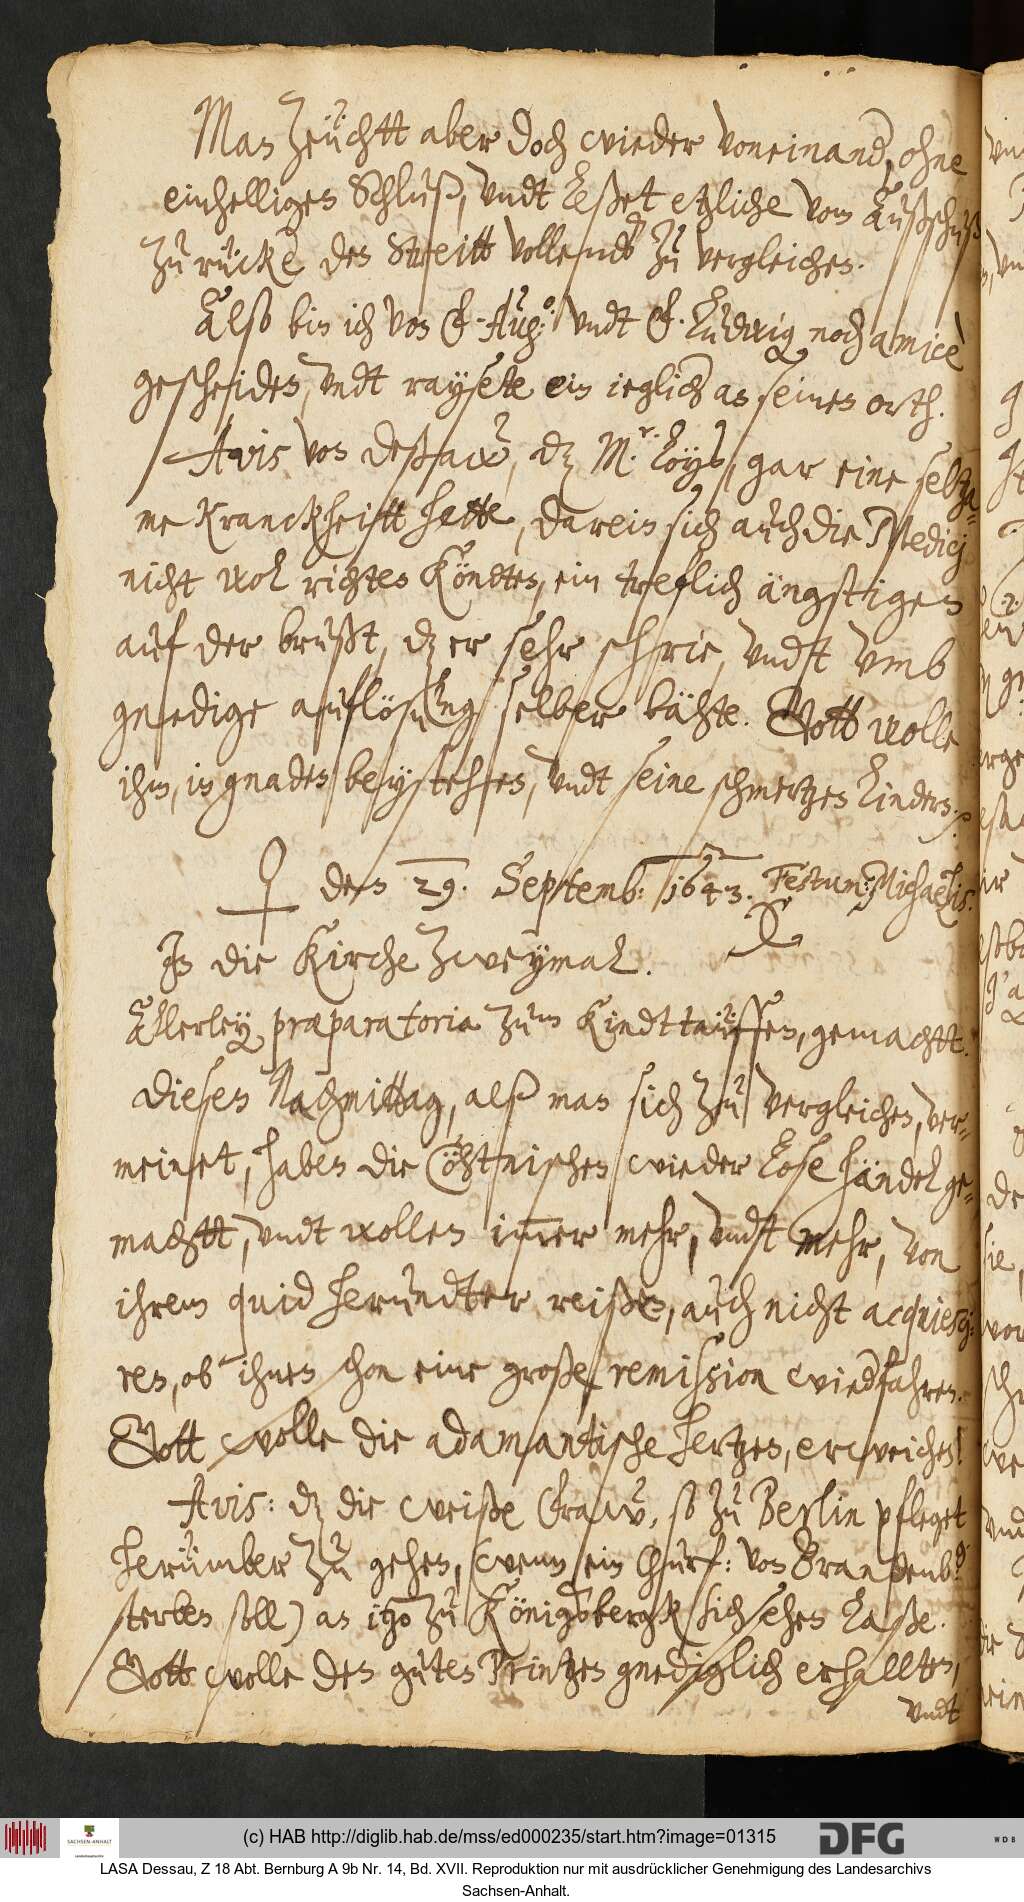 Man zeüchtt aber doch wieder voneinand, ohne
einhelligen Schluß, vndt leßet etzliche vom Außschuß
zu rücke den Streitt vollends zu vergleichen.
Also bin ich von F. Aug:o vndt F. Ludwig noch amicè
gescheiden, vndt raysete ein ieglich an seinen orth.
Avis von Deßaw, dz Mr. Loyß, gar eine seltza-
me Kranckheitt hette, darein sich auch die Medicj
nicht wol richten köndten, ein treflich ängstigen
auf der brust, dz er sehr schrie, vndt vmb
gnedige auflösung selber bähte. Gott wolle
ihm, in gnaden beystehen, vndt seine schmertzen lindern.
♀ den 29. Septemb: 1643. Festum: Michaelis.
In die Kirche zweymal.
Allerley præparatoria zum Kindttauffen, gemachtt.
Diesen Nachmittag, alß man sich zu vergleichen, ver-
meinet, haben die Cöhtnischen wieder lose händel ge-
machtt, vndt wollen im̅er mehr, vndt mehr, von
ihrem quid herundter reißen, auch nicht acquiesci-
ren, ob ihnen schon eine große remission wiedfahren.
Gott wolle die adamantische hertzen, erweichen!
Avis: dz die weiße Fraw, so zu Berlin pfleget
herumber zu gehen, (wenn ein Churf: von Brandenb:g
sterben soll) an itzo zu Königsbergk sich sehen laße.
Gott wolle den guten Printzen gnediglich erhallten,
vndt
(c) HAB http://diglib.hab.de/mss/ed000235/start.htm?image=01315
SACHSEN-ANHALT
DFG
WDB
LASA Dessau, Z 18 Abt. Bernburg A 9b Nr. 14, Bd. XVII. Reproduktion nur mit ausdrücklicher Genehmigung des Landesarchivs
Sachsen-Anhalt.